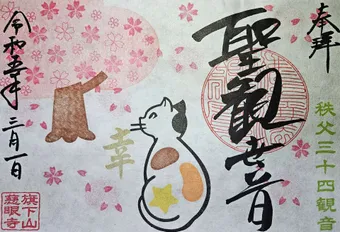 奉拝
秩父三十四観音
聖観世音
幸
令和五年 三月一日
旗下山
慈眼寺